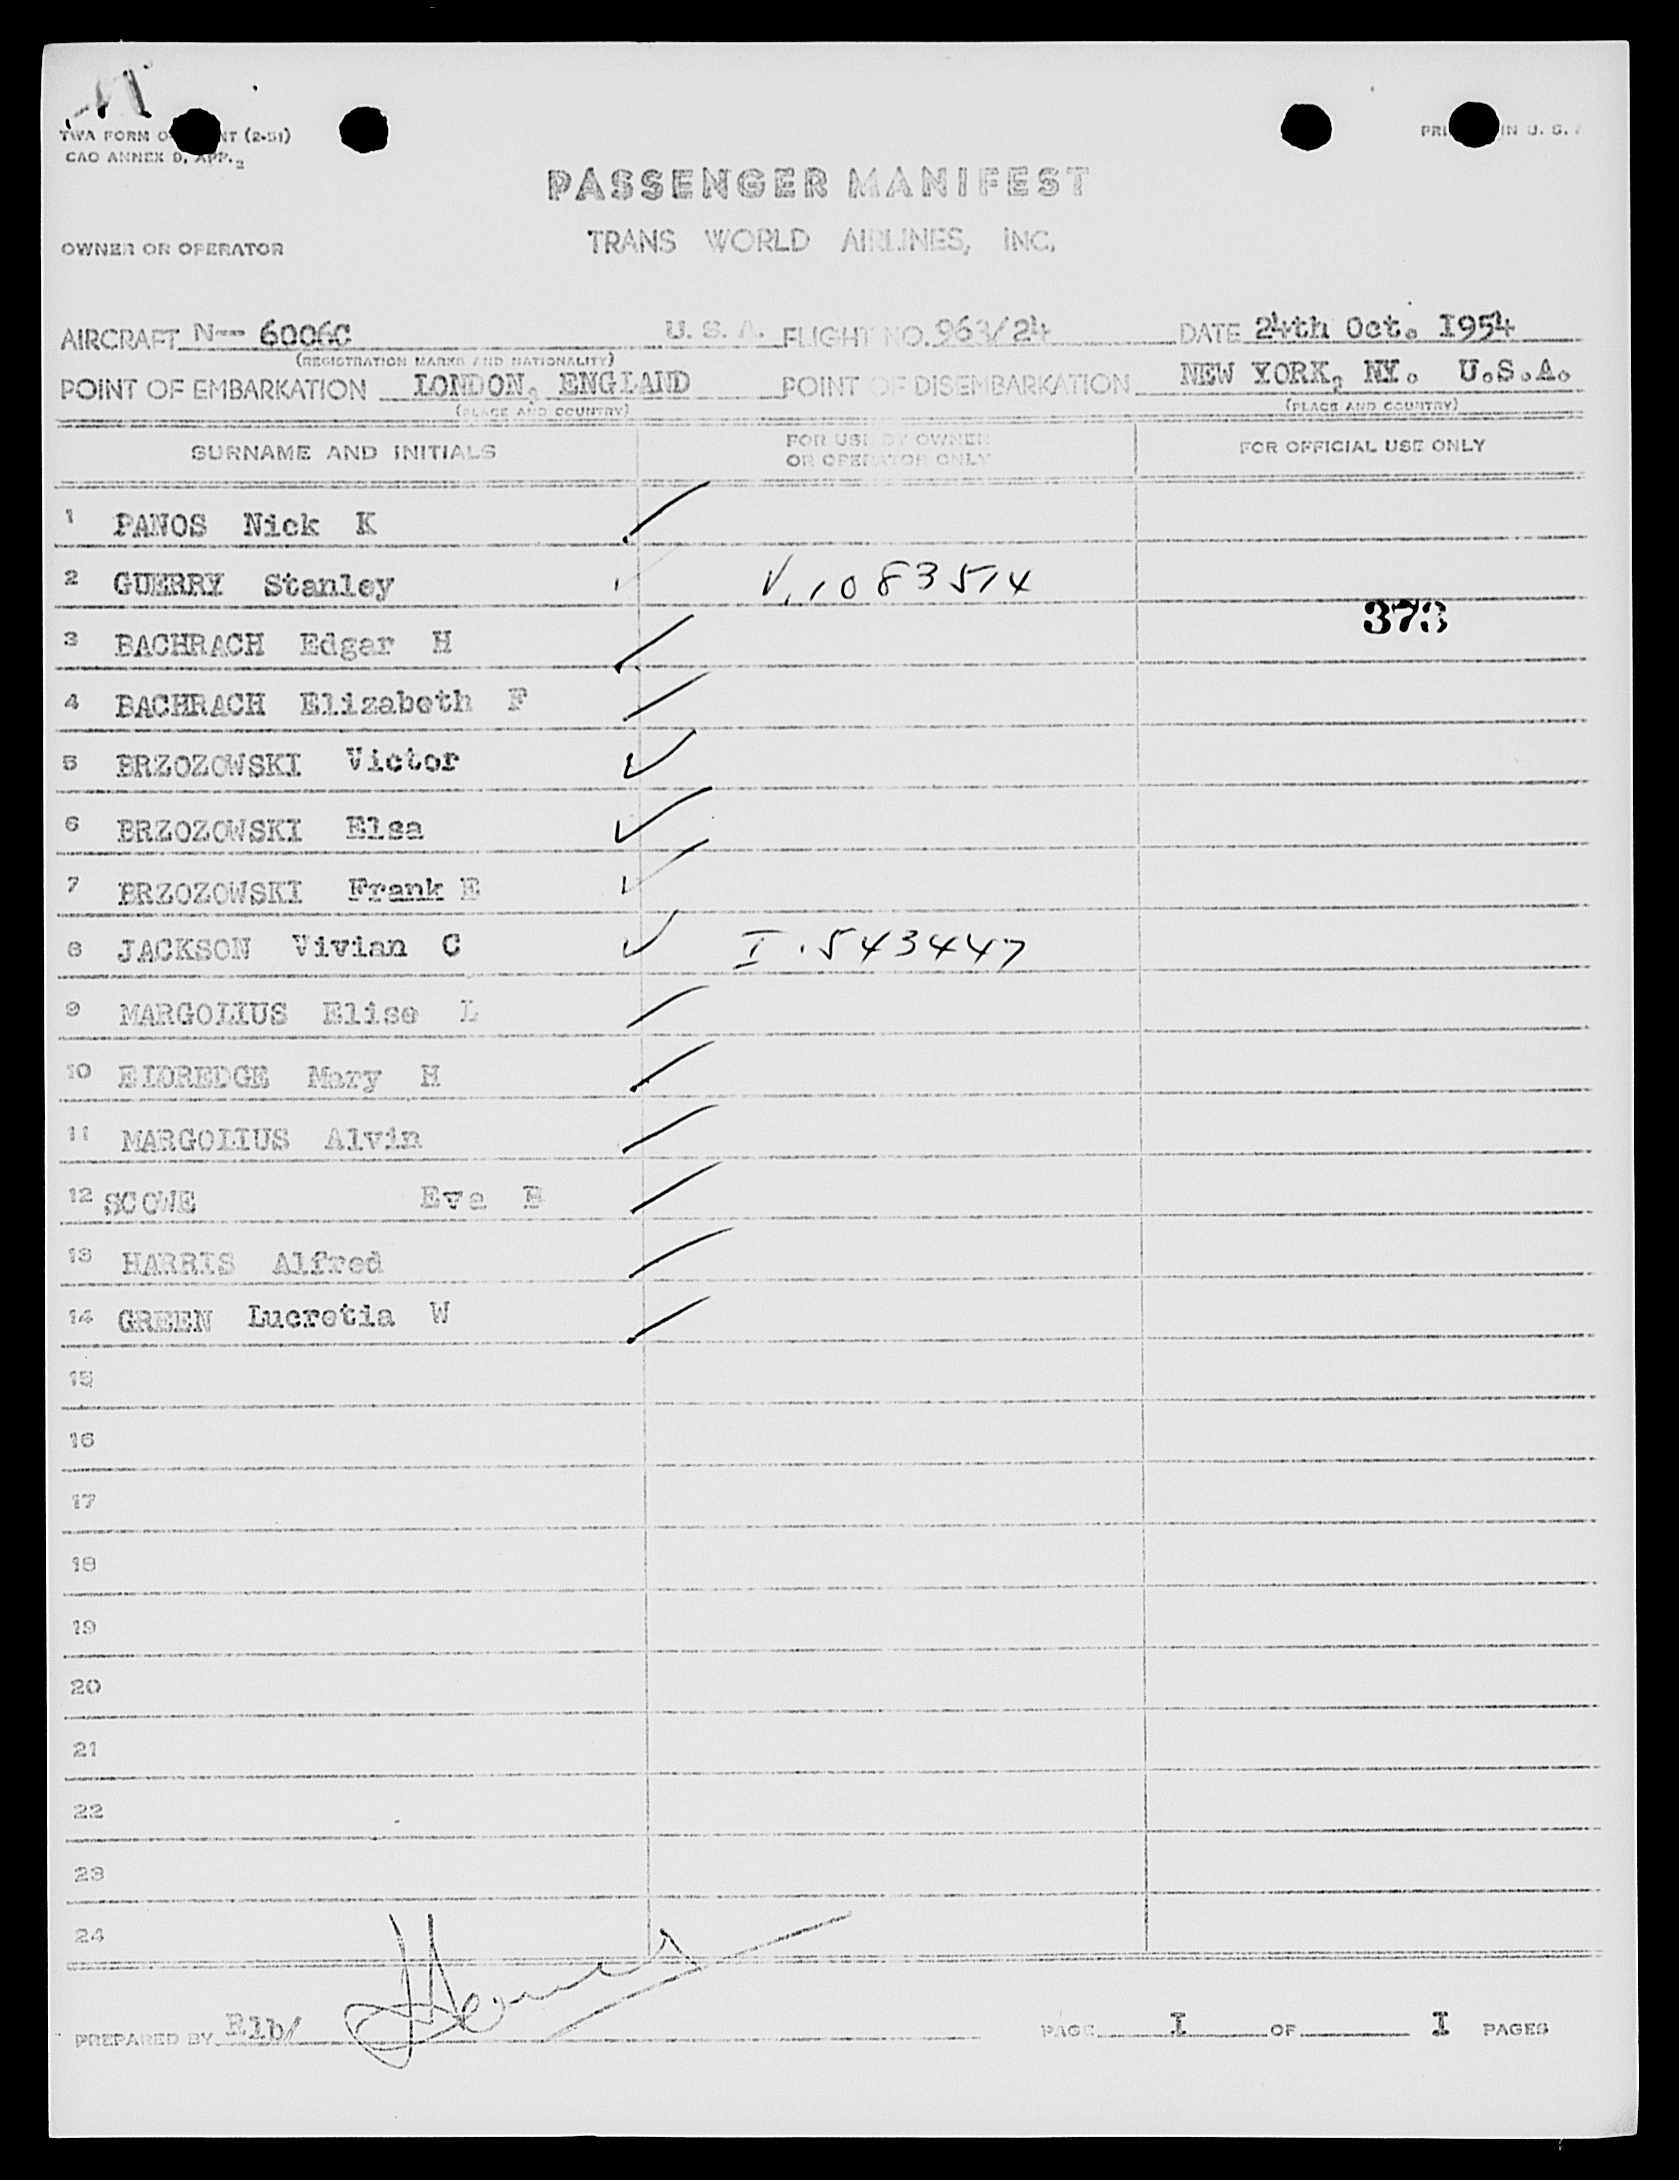 TWA FORM O NT (2-51)
CAO ANNEX D, APP. 2
PRI IN U. S. A
PASSENGER MANIFEST
OWNER OR OPERATOR TRANS WORLD AIRLINES, INC.
AIRCRAFT N-- 6006C U. S. A. FLIGHT NO. 963/24 DATE 24th Oct. I954
(REGISTRATION MARKS AND NATIONALITY)
POINT OF EMBARKATION LONDON, ENGLAND POINT OF DISEMBARKATION NEW YORK, NY. U.S.A.
(PLACE AND COUNTRY) (PLACE AND COUNTRY)
SURNAME AND INITIALS FOR USE BY OWNER OR OPERATOR ONLY FOR OFFICIAL USE ONLY
1 PANOS Nick K
2 GUERRY Stanley V.1083514
373
3 BACHRACH Edgar H
4 BACHRACH Elizabeth F
5 BRZOZOWSKI Victor
6 BRZOZOWSKI Elsa
7 BRZOZOWSKI Frank E
8 JACKSON Vivian C I.543447
9 MARGOLIUS Elise L
10 ELDREDGE Mary H
11 MARGOLIUS Alvin
12 SCOWE Eva E
13 HARRIS Alfred
14 GREEN Lucretia W
15
16
17
18
19
20
21
22
23
24
PREPARED BY Elb/ PAGE I OF I PAGES